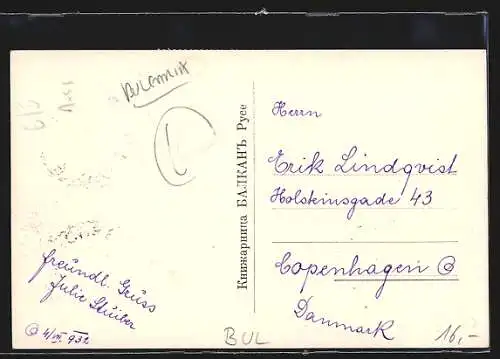 BULGARIEN
Книжарница БАЛКАНЪ Русе
Herrn
Erik Lindqvist
Holsteinsgade 43
Copenhagen Ø
Danmark
freundl. Grüss
Julie Stüber
932
BUL
16,-